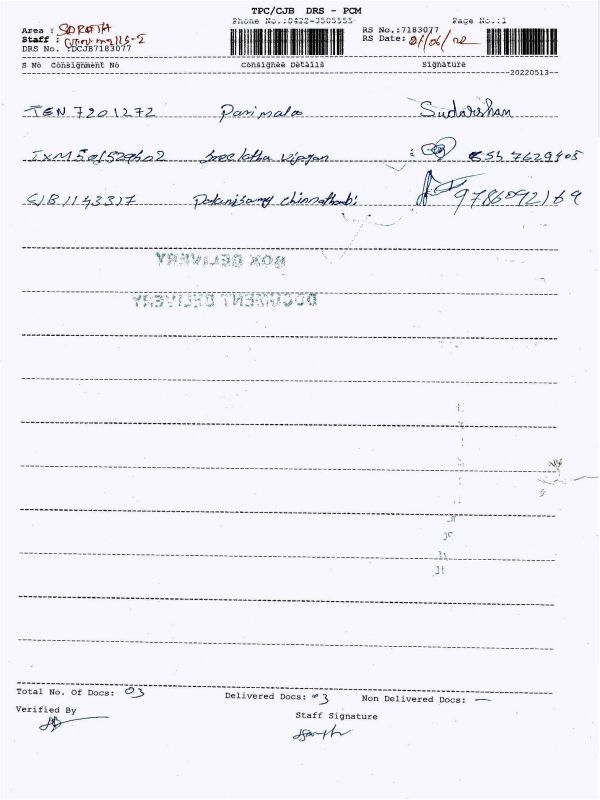 TPC/CJB DRS - PCM
Phone No.:0422-3505555 Page No.:1
Area :
Staff :
DRS No. :DCJB7183077
RS No.:7183077
RS Date: 01/06/22
S No Consignment No Consignee Details Signature
20220513
TEN 7201272 Parimala Sudarshan
IXM501529602 Sreelatha Vijayan
CJB1143317 Palanisamy Chinnathambi 9786092169
BOX DELIVERY
DOCUMENT DELIVERY
Total No. Of Docs: 03 Delivered Docs: 03 Non Delivered Docs: —
Verified By
Staff Signature